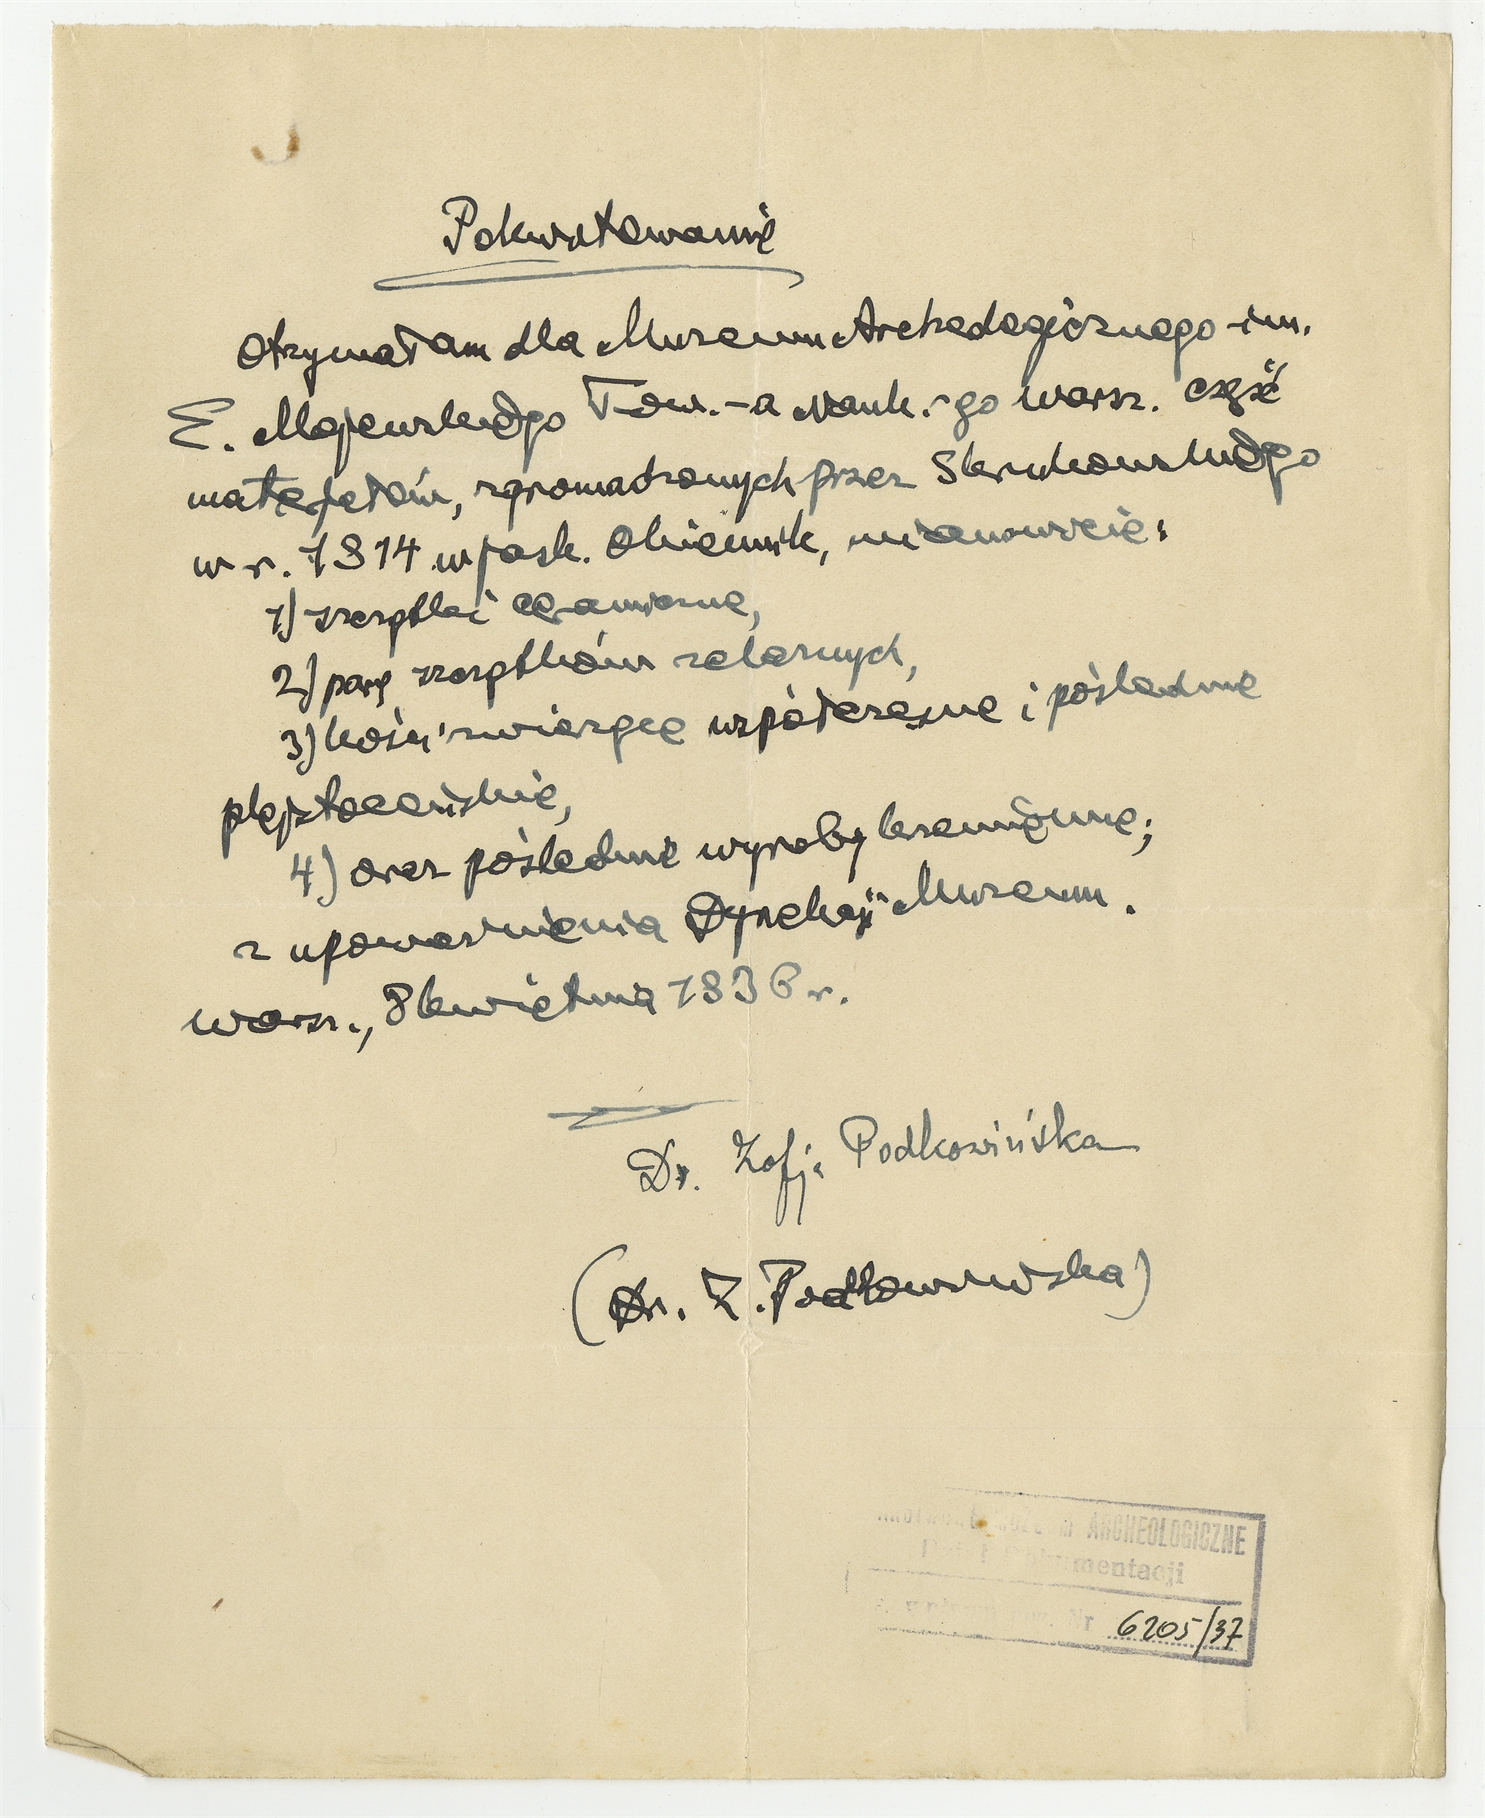 Pokwitowanie
Otrzymałam dla Muzeum Archeologicznego im.
E. Majewskiego Tow.-a Nauk.-go Warsz. część
materjałów, zgromadzonych przez Krukowskiego
w r. 1914 w jask. Okiennik, mianowicie:
1) szczątki ceramiczne,
2) parę szczątków żelaznych,
3) kości zwierzęce współczesne i poślednie
plejstoceńskie,
4) oraz poślednie wyroby krzemienne;
z upoważnienia Dyrekcji Muzeum.
Warsz., 8 kwietnia 1936 r.
Dr. Zofja Podkowińska
(Dr. Z. Podkowińska)
ARCHEOLOGICZNE
Dokumentacji
Nr 6205/37